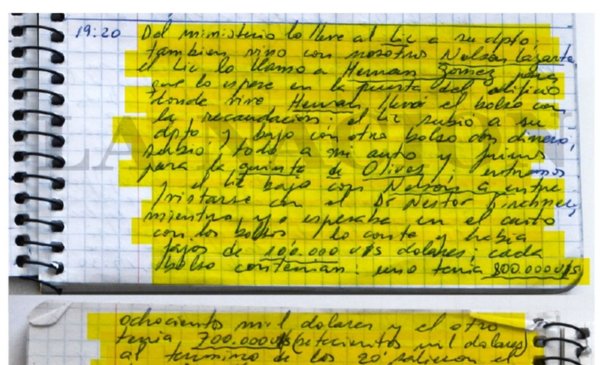 19:20 Del ministerio lo lleve al Lic a su dpto,
tambien vino con nosotros Nelson Lazarte,
el Lic lo llamo a Hernan Gomez para
que lo espere en la puerta del edificio
donde vive Hernan llevó el bolso con
la recaudación; el Lic subió a su
dpto y bajo con otro bolso con dinero,
subió todo a mi auto y fuimos
para la quinta de Olivos, entramos
y el Lic bajo con Nelson a entre
vistarse con el Dr Nestor Kirchner,
mientras yo esperaba en el auto
con los bolsos, lo conte y habia
fajos de 100.000 U$S dolares; cada
bolso contenian: uno tenia 800.000U$S
ochocientos mil dolares y el otro
tenia 700.000U$S (setecientos mil dolares)
al termino de los 20' salieron el
LA NACION